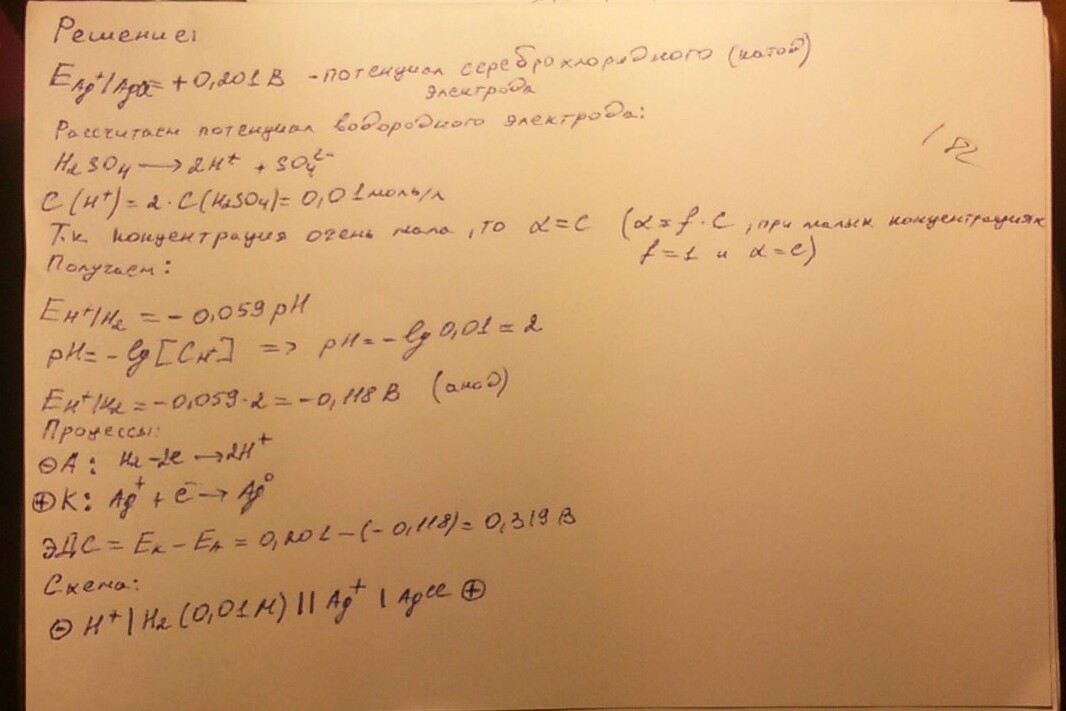 Решение:
E Ag⁺/AgCl = + 0,201 В - потенциал сереброхлоридного (катод)
электрода
Рассчитаем потенциал водородного электрода:
H₂SO₄ → 2H⁺ + SO₄²⁻
C(H⁺) = 2 · C(H₂SO₄) = 0,01 моль/л
Т.к. концентрация очень мала, то α = C (α = f · C, при малых концентрациях
f = 1 и α = C)
Получаем:
E H⁺/H₂ = - 0,059 pH
pH = - lg [C H⁺] => pH = - lg 0,01 = 2
E H⁺/H₂ = - 0,059 · 2 = - 0,118 В (анод)
Процессы:
⊖ А: H₂ - 2e → 2H⁺
⊕ К: Ag⁺ + e⁻ → Ag⁰
ЭДС = Eк - Eа = 0,201 - (- 0,118) = 0,319 В
Схема:
⊖ H⁺ | H₂ (0,01 М) || Ag⁺ | AgCl ⊕